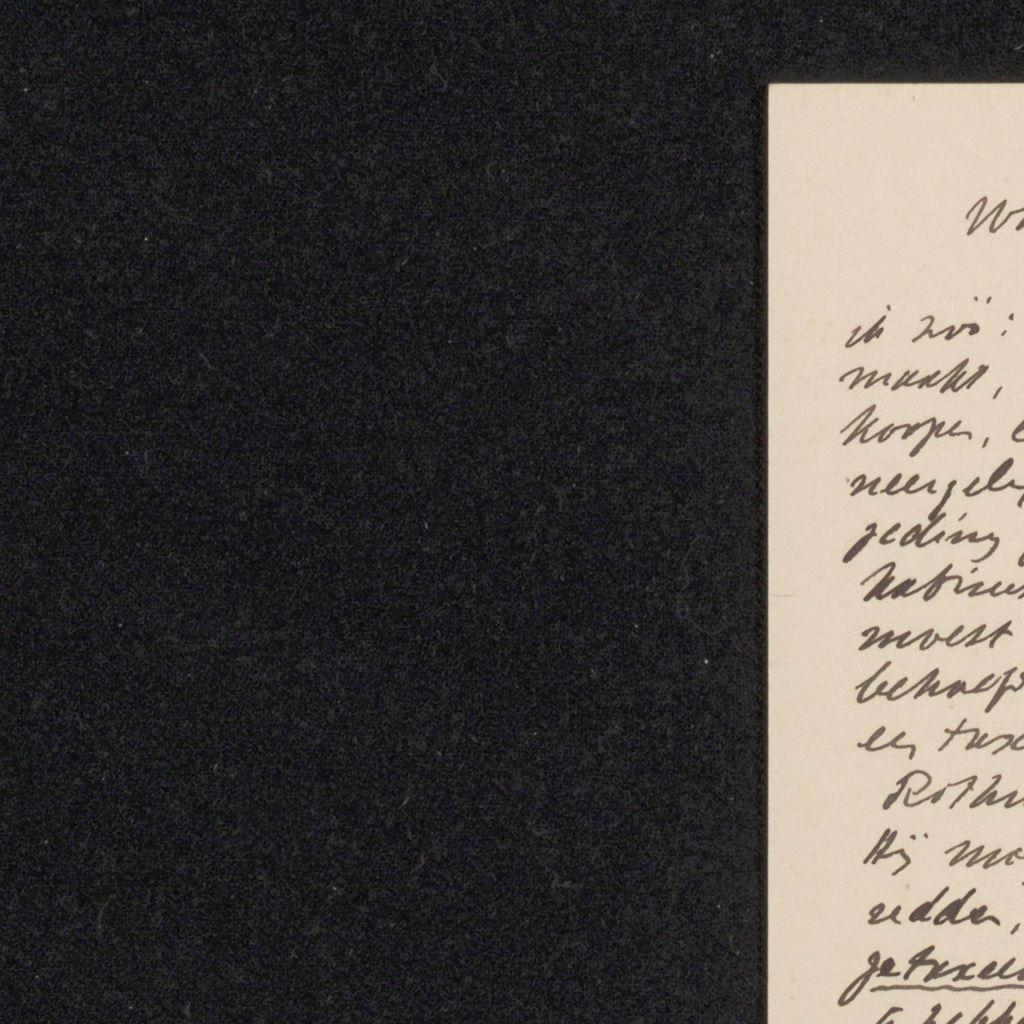 ik zoo:
maakt,
koopen,
neergele
geding
kabine
moest
behoef
een taxe
Roth
Hij mo
redden,
getaxee
te hebbe